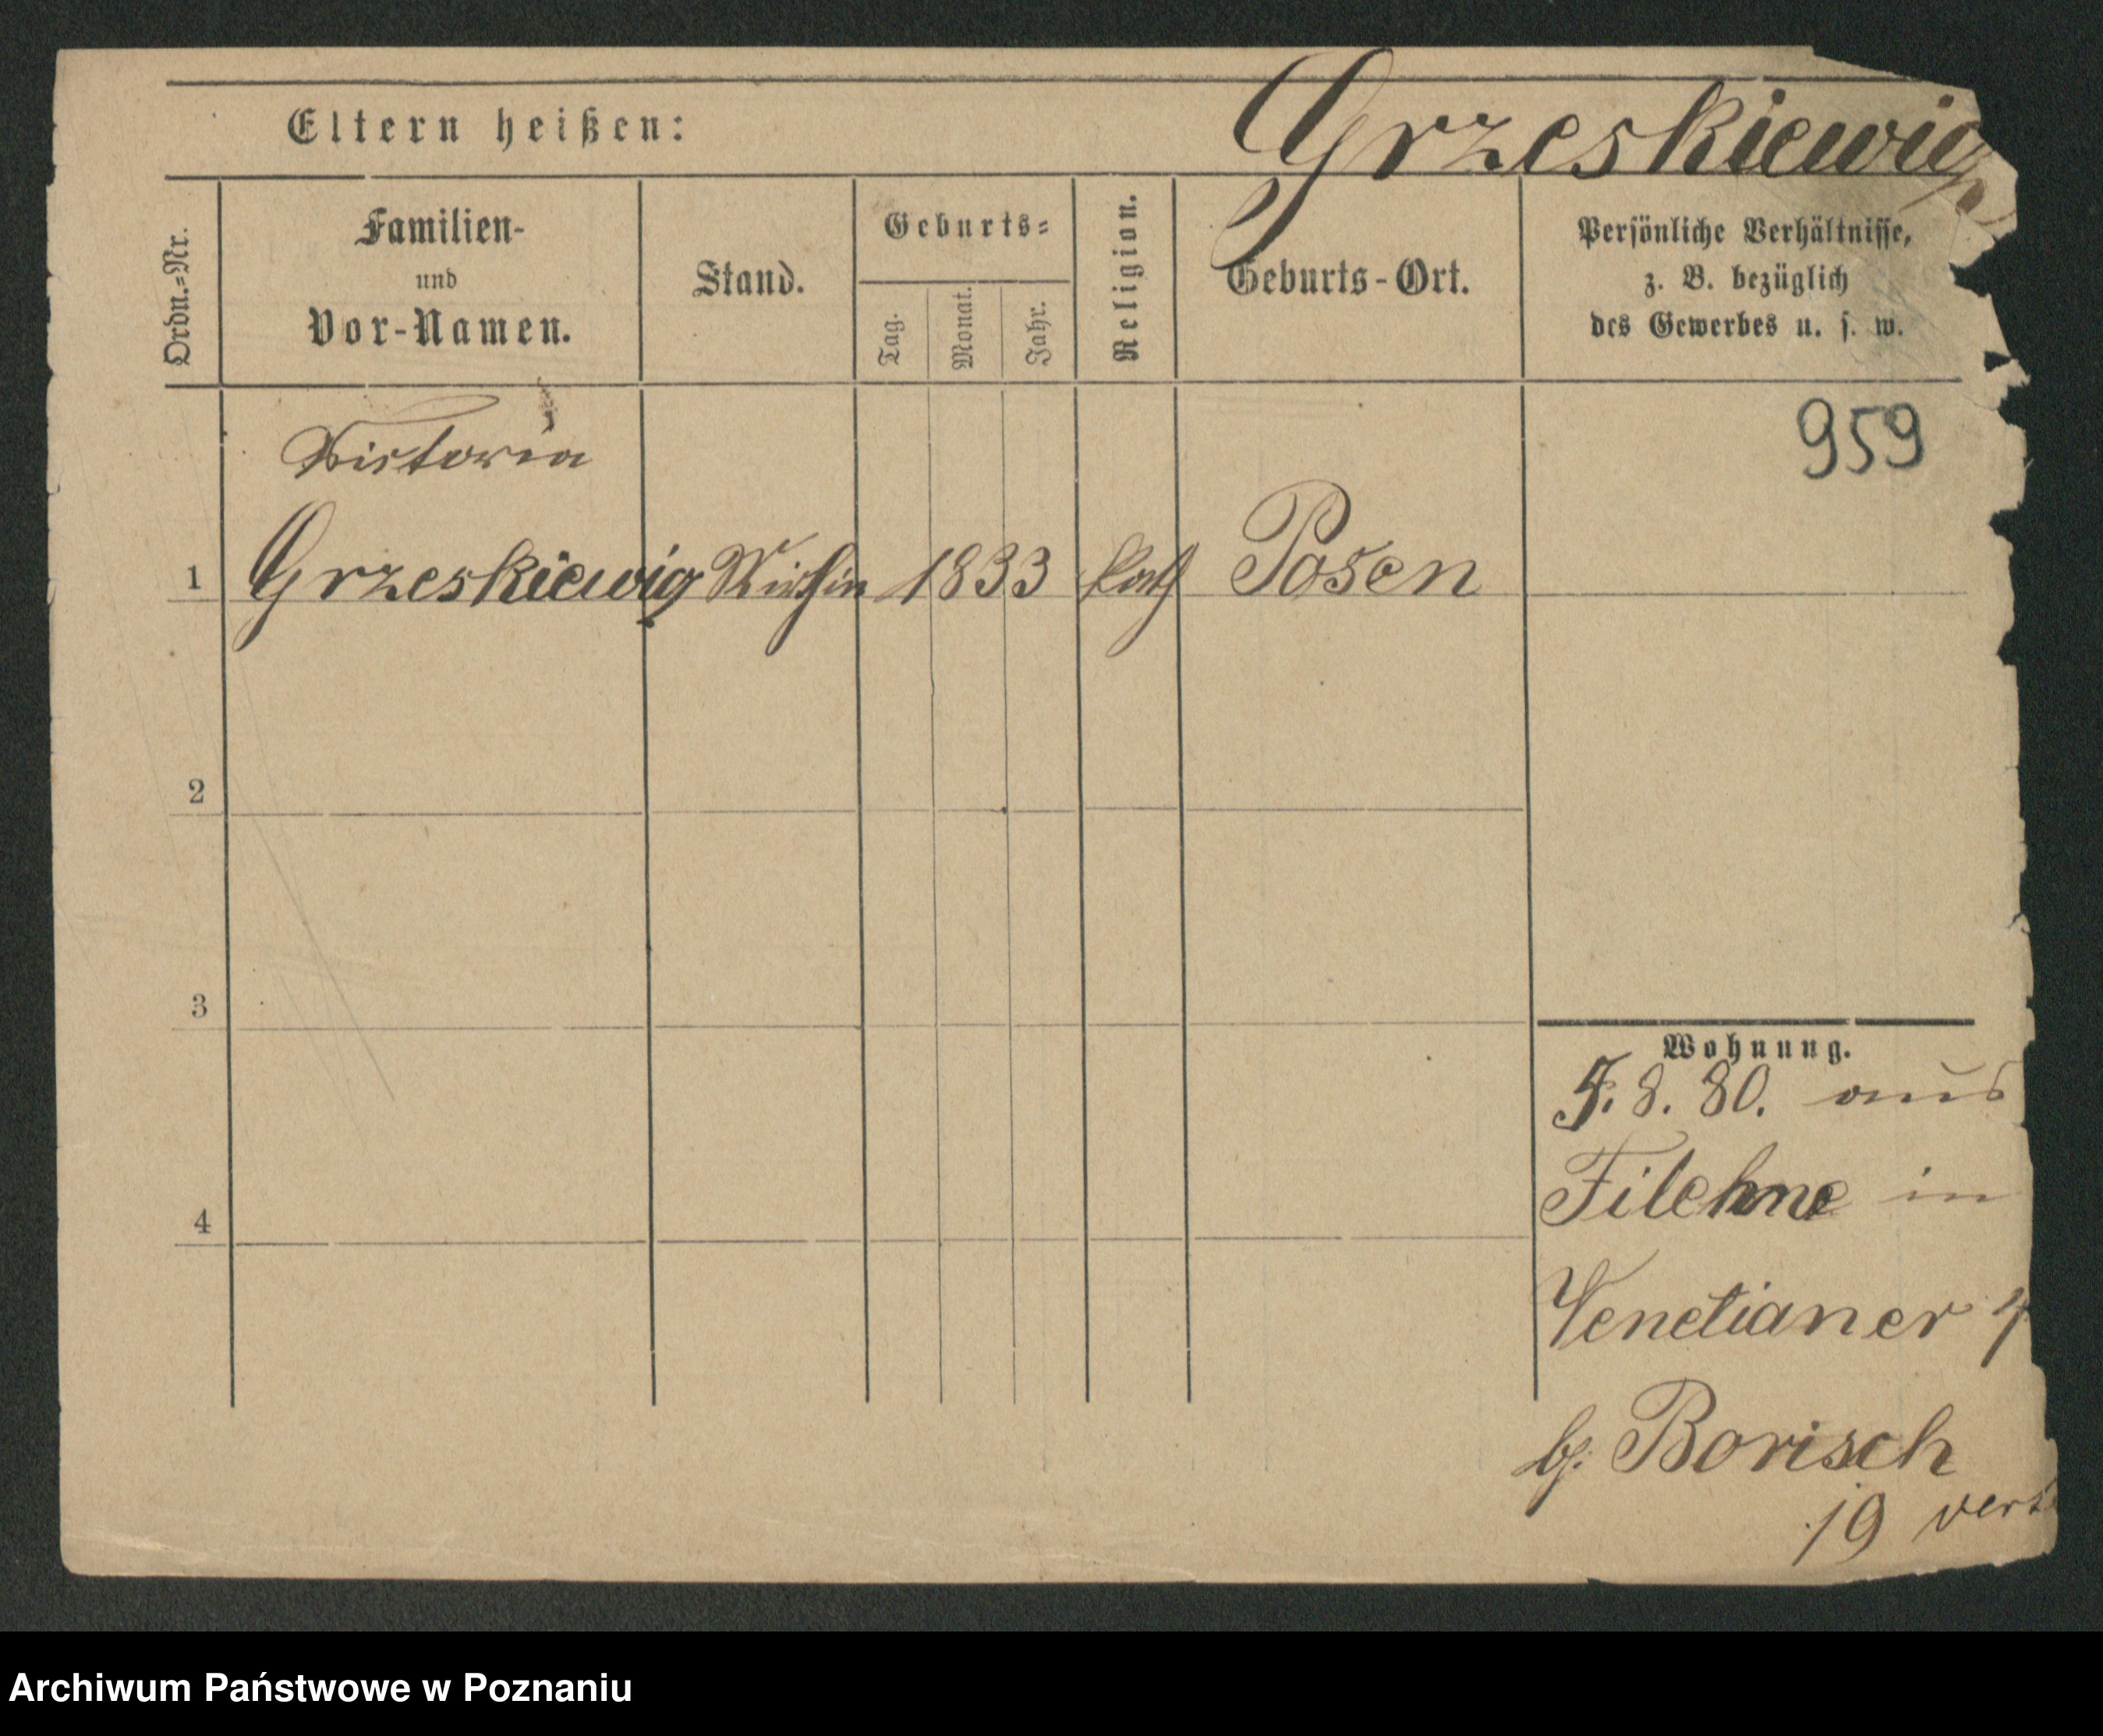 Eltern heißen:
Grzeskiewicz
Ordn.=Nr.
Familien-
und
Vor-Namen.
Stand.
Geburts=
Tag.
Monat.
Jahr.
Religion.
Geburts-Ort.
Persönliche Verhältnisse,
z. B. bezüglich
des Gewerbes u. s. w.
959
Victoria
1 Grzeskiewicz 1833 kath Posen
2
3
4
Wohnung.
8. 80. aus
Filehne in
Venetianer 4
b. Borisch
19
Archiwum Państwowe w Poznaniu